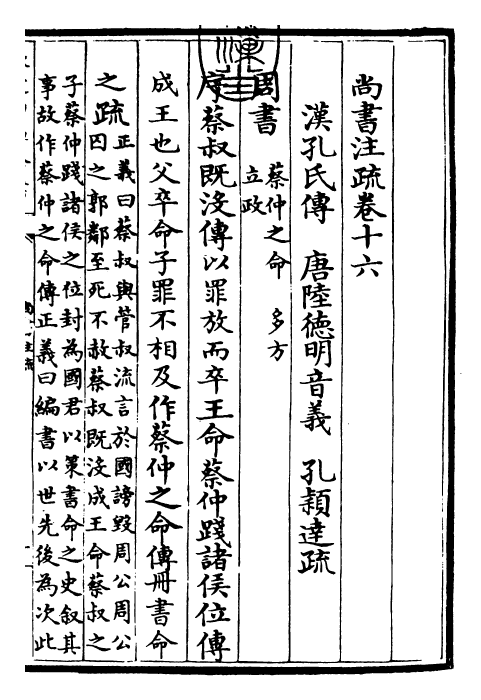 尚書注疏卷十六
漢孔氏傳　唐陸德明音義　孔穎達疏
周書
蔡仲之命　多方
立政
序蔡叔既沒傳以罪放而卒王命蔡仲踐諸侯位傳
成王也父卒命子罪不相及作蔡仲之命傳冊書命
之疏
正義曰蔡叔與管叔流言於國謗毀周公周公
囚之郭鄰至死不赦蔡叔既沒成王命蔡叔之
子蔡仲踐諸侯之位封為國君以策書命之史叙其
事故作蔡仲之命傳正義曰編書以世先後為次此